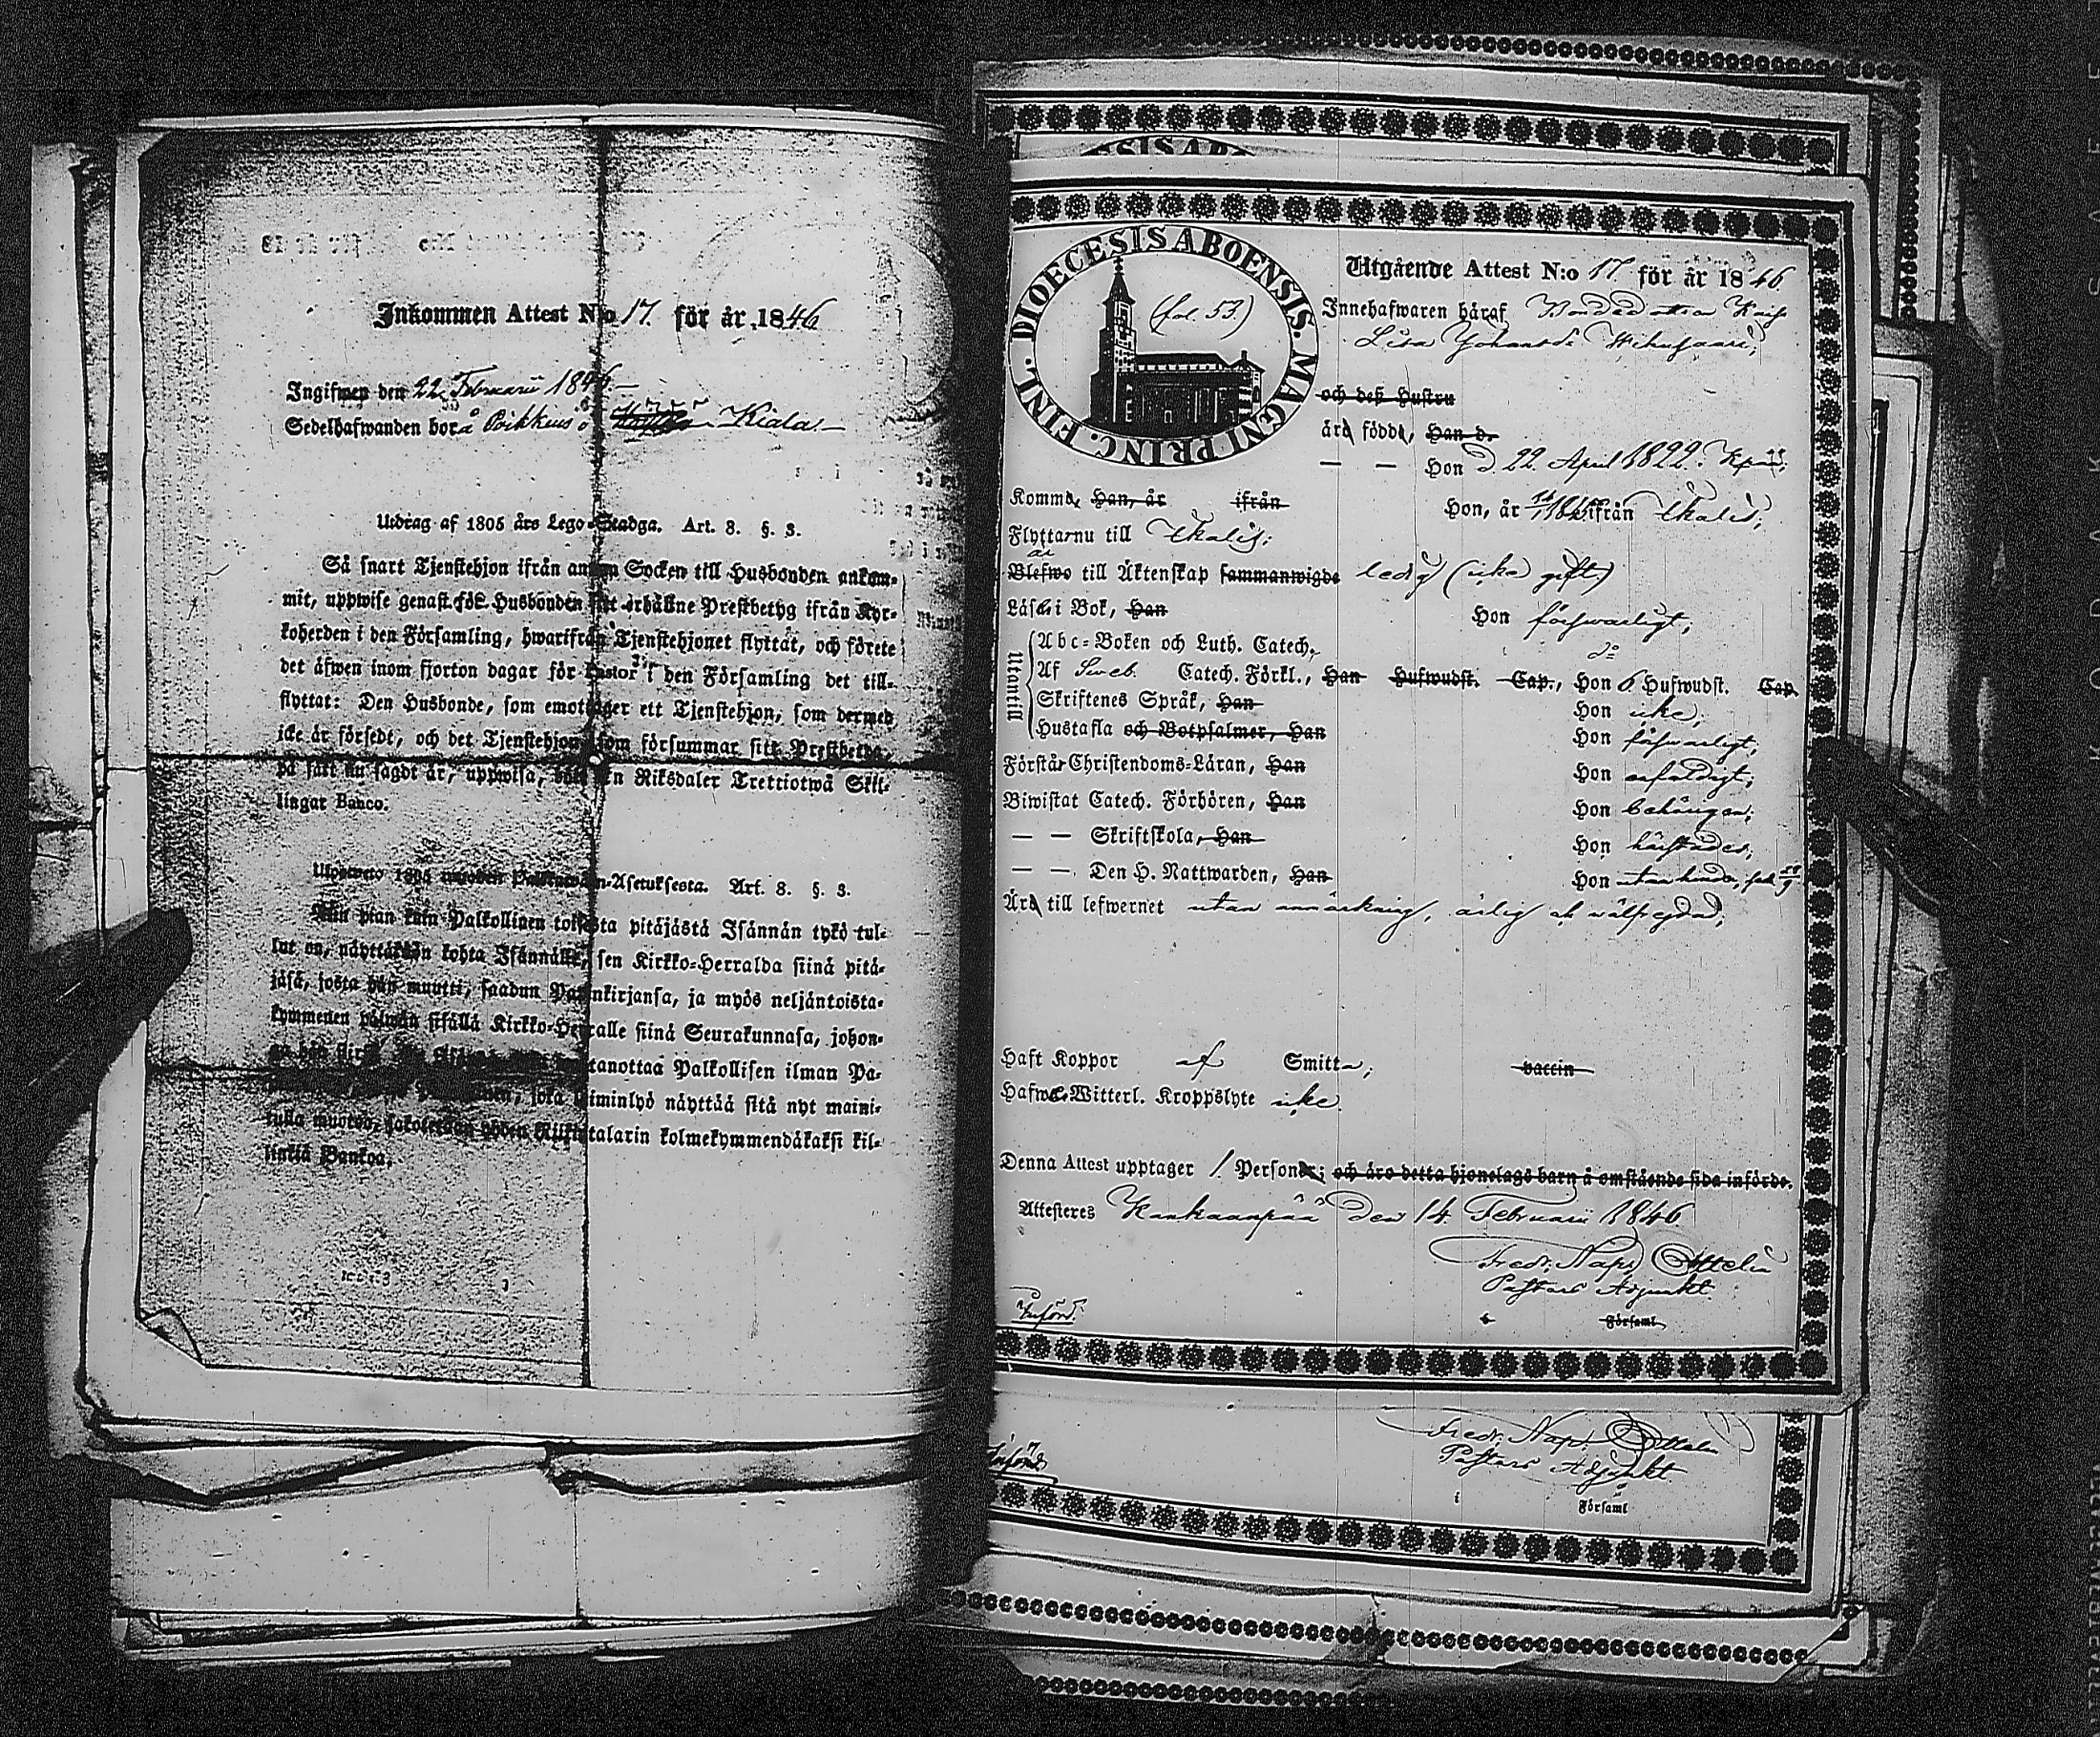 Inkommen Attest N:o 17. för år 1846
Ingifwen den 22 Februarii 1846
Sedelhafwanden bor å Poikkeus Kiala
Utdrag af 1805 års Lego-Stadga. Art. 8. §. 3.
Så snart Tjenstehjon ifrån annan Socken till Husbonden ankom-
mit, uppwise genast för Husbonden sitt erhållne Prestbetyg ifrån Kyr-
koherden i den Församling, hwarifrån Tjenstehjonet flyttat, och förete
det äfwen inom fjorton dagar för Pastor i den Församling det till-
flyttat: Den Husbonde, som emottager ett Tjenstehjon, som dermed
icke är försedt, och det Tjenstehjon som försummar sitt Prestbetyg,
på sätt nu sagdt är, uppwisa, böte En Riksdaler Trettiotwå Skil-
lingar Banco.
Ulosweto 1805 Palkawäen-Asetuksesta. Art. 8. §. 3.
Niin pian kuin Palkollinen toisesta pitäjästä Isännän tykö tul-
lut on, näyttäkään kohta Isännälle, sen Kirkko-Herralda siinä pitä-
jäsä, josta hän muutti, saadun Papinkirjansa, ja myös neljäntoista-
kymmenen päiwän sisällä Kirkko-Herralle siinä Seurakunnasa, johon-
tanottaa Palkollisen ilman Pa-
jota laiminlyö näyttää sitä nyt maini-
tulla muoton, sakotetaan yhden Riikintalarin kolmekymmendäkaksi kil-
linkiä Bankoa.
DIOECESIS ABOENSIS. MAGNI PRINC. FINL.
(fol. 53.)
Utgående Attest N:o 17 för år 1846
Innehafwaren häraf Bondedottren Kajsa
Lisa Johansdr
och deß Hustru
ära födde, Han d.
— — Hon d. 22 April 1822.
Komma, Han, år ifrån Hon, år ifrån Ikalis,
Flyttarnu till Ikalis;
är
Blefwo till Äktenskap sammanwigde ledig (icke gift)
Läsa i Bok, Han Hon förswarligt,
Utantill
Abc-Boken och Luth. Catech. d:o
Af Sweb. Catech. Förkl., Han Hufwudst. Cap., Hon 6 Hufwudst. Cap.
Skriftenes Språk, Han Hon icke,
Hustafla och Botpsalmer, Han Hon förswarligt,
Förstår Christendoms-Läran, Han Hon enfaldigt,
Biwistat Catech. Förhören, Han Hon behörigen;
— — Skriftskola, Han Hon härstädes,
— — Den H. Nattwarden, Han Hon utan hinder,
Ära till lefwernet utan anmärkning, ärlig och wälfrejdad,
Haft Koppor af Smitta; vaccin
Hafwe Witterl. Kroppslyte icke.
Denna Attest upptager 1. Personer; och äro detta hjonelags barn å omstående sida införde.
Attesteres Kankaanpää den 14 Februarii 1846
Fredr. Nap.
Pastors Adjunkt.
i Församl
Införd.
Fredr. Nap.
Pastors Adjunkt
i Församl
Införd